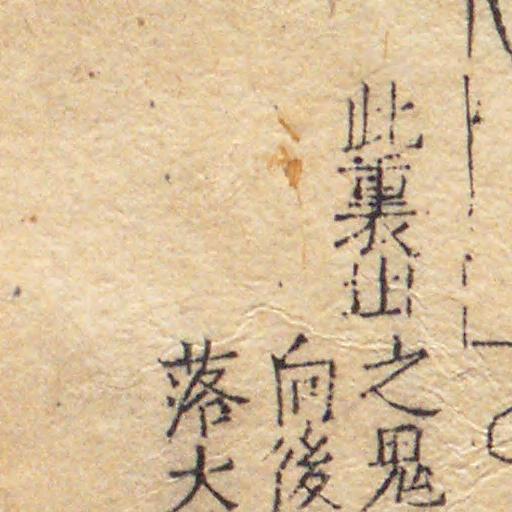 此裏出之鬼
向後
落大